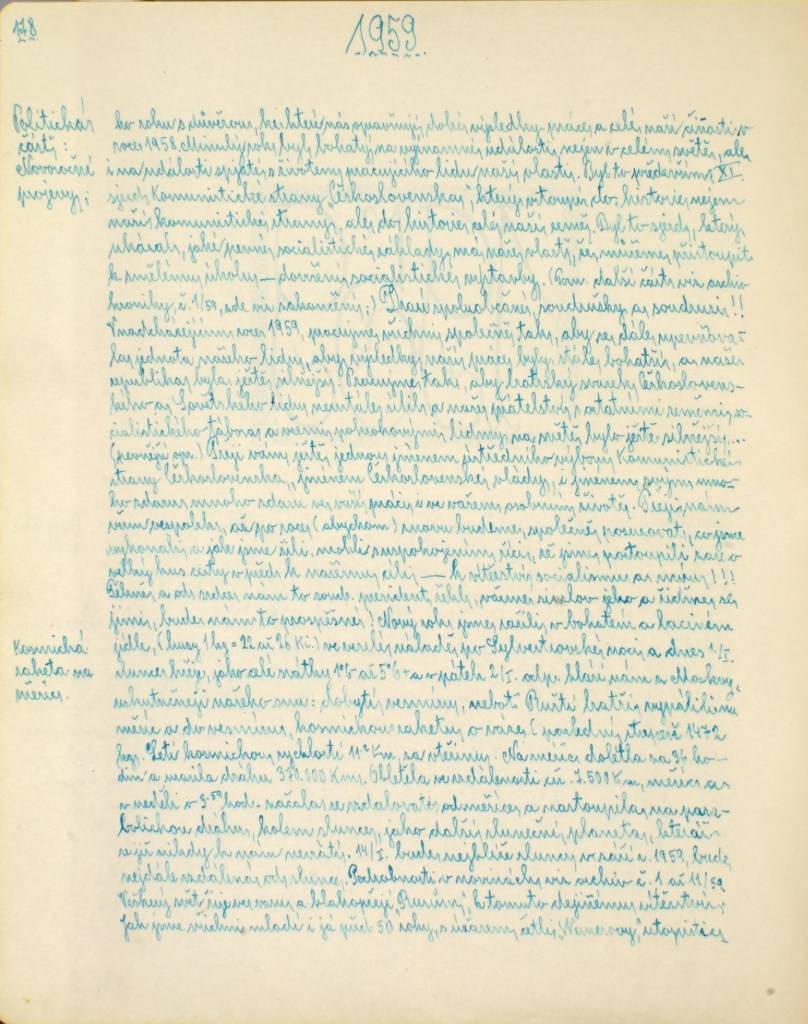 178
1959
Politická
část:
Novoroční
projevy:
ho roku s důvěrou, ke které nás opravňují dobré výsledky práce a celé naší činnosti v
roce 1958. Minulý rok byl bohatý na významné události nejen v celém světě, ale
i na události spjaté s životem pracujícího lidu naší vlasti. Byl to především XI.
sjezd Komunistické strany Československa, který vstoupí do historie nejen
naší komunistické strany, ale do historie celé naší země. Byl to sjezd, který
ukázal, jaké pevné socialistické základy má naše vlast, že můžeme přistoupit
k smělému úkolu — dovršení socialistické výstavby. (Pom. další část viz archiv
kroniky č. 1/59, zde viz zakončení:) Drazí spoluobčané, soudružky a soudruzi!!
V nadcházejícím roce 1959, pracujme všichni společně tak, aby se dále upevňova-
la jednota našeho lidu, aby výsledky naší práce byly stále bohatší, a naše
republika byla ještě silnější. Pracujme tak, aby bratrský svazek Českosloven-
ského a Sovětského lidu neustále sílil a naše přátelství s ostatními zeměmi so-
cialistického tábora a všemi pokrokovými lidmi na světě bylo ještě silnější...
(pevnější opr.) Přeji vám ještě jednou jménem ústředního výboru Komunistické
strany Československa, jménem Československé vlády, i jménem svým mno-
ho zdaru mnoho zdaru ve vaší práci i ve vašem osobním životě. Přeji nám
všem vespolek, až po roce (abychom) znovu budeme společně posuzovat, co jsme
vykonali a jak jsme žili, mohli s uspokojením říci, že jsme postoupili zase o
velký kus cesty v před k našemu cíli — k vítězství socialismu a míru!!!
Pěkně a od srdce nám to soudr. president řekl, važme si slov jeho a řiďme se
jimi, bude nám to prospěšné! Nový rok jsme začali v bohatém a laciném
Kosmická
raketa na
měsíc.
jídle, (husy 1 kg = 22 až 26 Kč.) ve veselé náladě po Sylvestrovské noci a dnes 1/I.
slunce hřeje, jako celé svátky 1°6 až 5°6 + a v pátek 2/I. odp. hlásí nám z Moskvy,
uskutečnění našeho snu: dobytí vesmíru, neboť Ruští bratři vypálili na
měsíc a do vesmíru, kosmickou raketu o váze (poslední stupeň 1472
kg. Letí kosmickou rychlostí 11.2 Km. za vteřinu. Na měsíc doletěla za 36 ho-
din a urazila dráhu 370.000 Km. Obletěla ve vzdálenosti asi 7.500 Km, měsíc a
v neděli v 3.59 hod. začala se vzdalovat od měsíce a nastoupila na para-
bolickou dráhu, kolem slunce, jako další sluneční planeta, která
se již nikdy k nám nevrátí. 14/I. bude nejblíže slunci v září r. 1959, bude
nejdále vzdálena od slunce. Podrobnosti v novinách viz archiv č. 1 až 11/59
Všechen svět žije a blahopřejí Rusům, k tomuto dějinnému vítězství.
Jak jsme všichni mladí i já před 50 roky, s úžasem četli „Vernovy“ utopistic